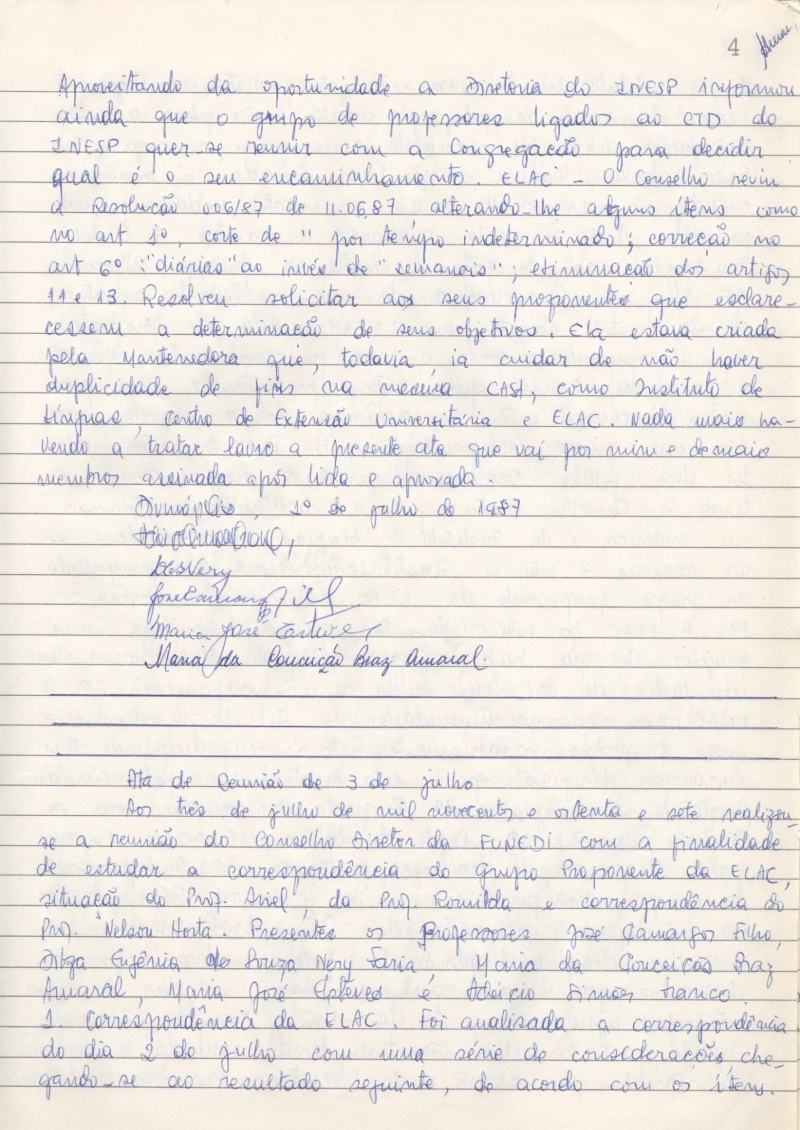 4
Aproveitando da oportunidade a Diretoria do INESP informou
ainda que o grupo de professores ligados ao CTD do
INESP quer-se reunir com a Congregação para decidir
qual é o seu encaminhamento. ELAC - O Conselho reviu
a Resolução 006/87 de 11.06.87 alterando-lhe alguns ítens como
no art 1º, corte de "por tempo indeterminado; correção no
art 6º: "diárias" ao invés de "semanais"; eliminação dos artigos
11 e 13. Resolveu solicitar aos seus proponentes que esclare-
cessem a determinação de seus objetivos. Ela estava criada
pela Mantenedora que, todavia ia cuidar de não haver
duplicidade de fins na mesma CASA, como Instituto de
Línguas, Centro de Extensão Universitária e ELAC. Nada mais ha-
vendo a tratar lavro a presente ata que vai por mim e demais
membros assinada após lida e aprovada.
Divinópolis, 1º de julho de 1987
DESNery
José Camargos
Maria José Esteves
Maria da Conceição Braz Amaral.
Ata de Reunião de 3 de julho
Aos três de julho de mil novecentos e oitenta e sete realizou-
se a reunião do Conselho Diretor da FUNEDI com a finalidade
de estudar a correspondência do Grupo Proponente da ELAC,
situação do Prof. Ariel, da Prof. Romilda e correspondência do
Prof. Nelson Horta. Presentes os Professores José Camargos Filho,
Ilga Eugênia de Souza Nery Faria, Maria da Conceição Braz
Amaral, Maria José Esteves e Aluício Simões Franco.
1. Correspondência da ELAC. Foi analisada a correspondência
do dia 2 de julho com uma série de considerações, che-
gando-se ao resultado seguinte, de acordo com os ítens.